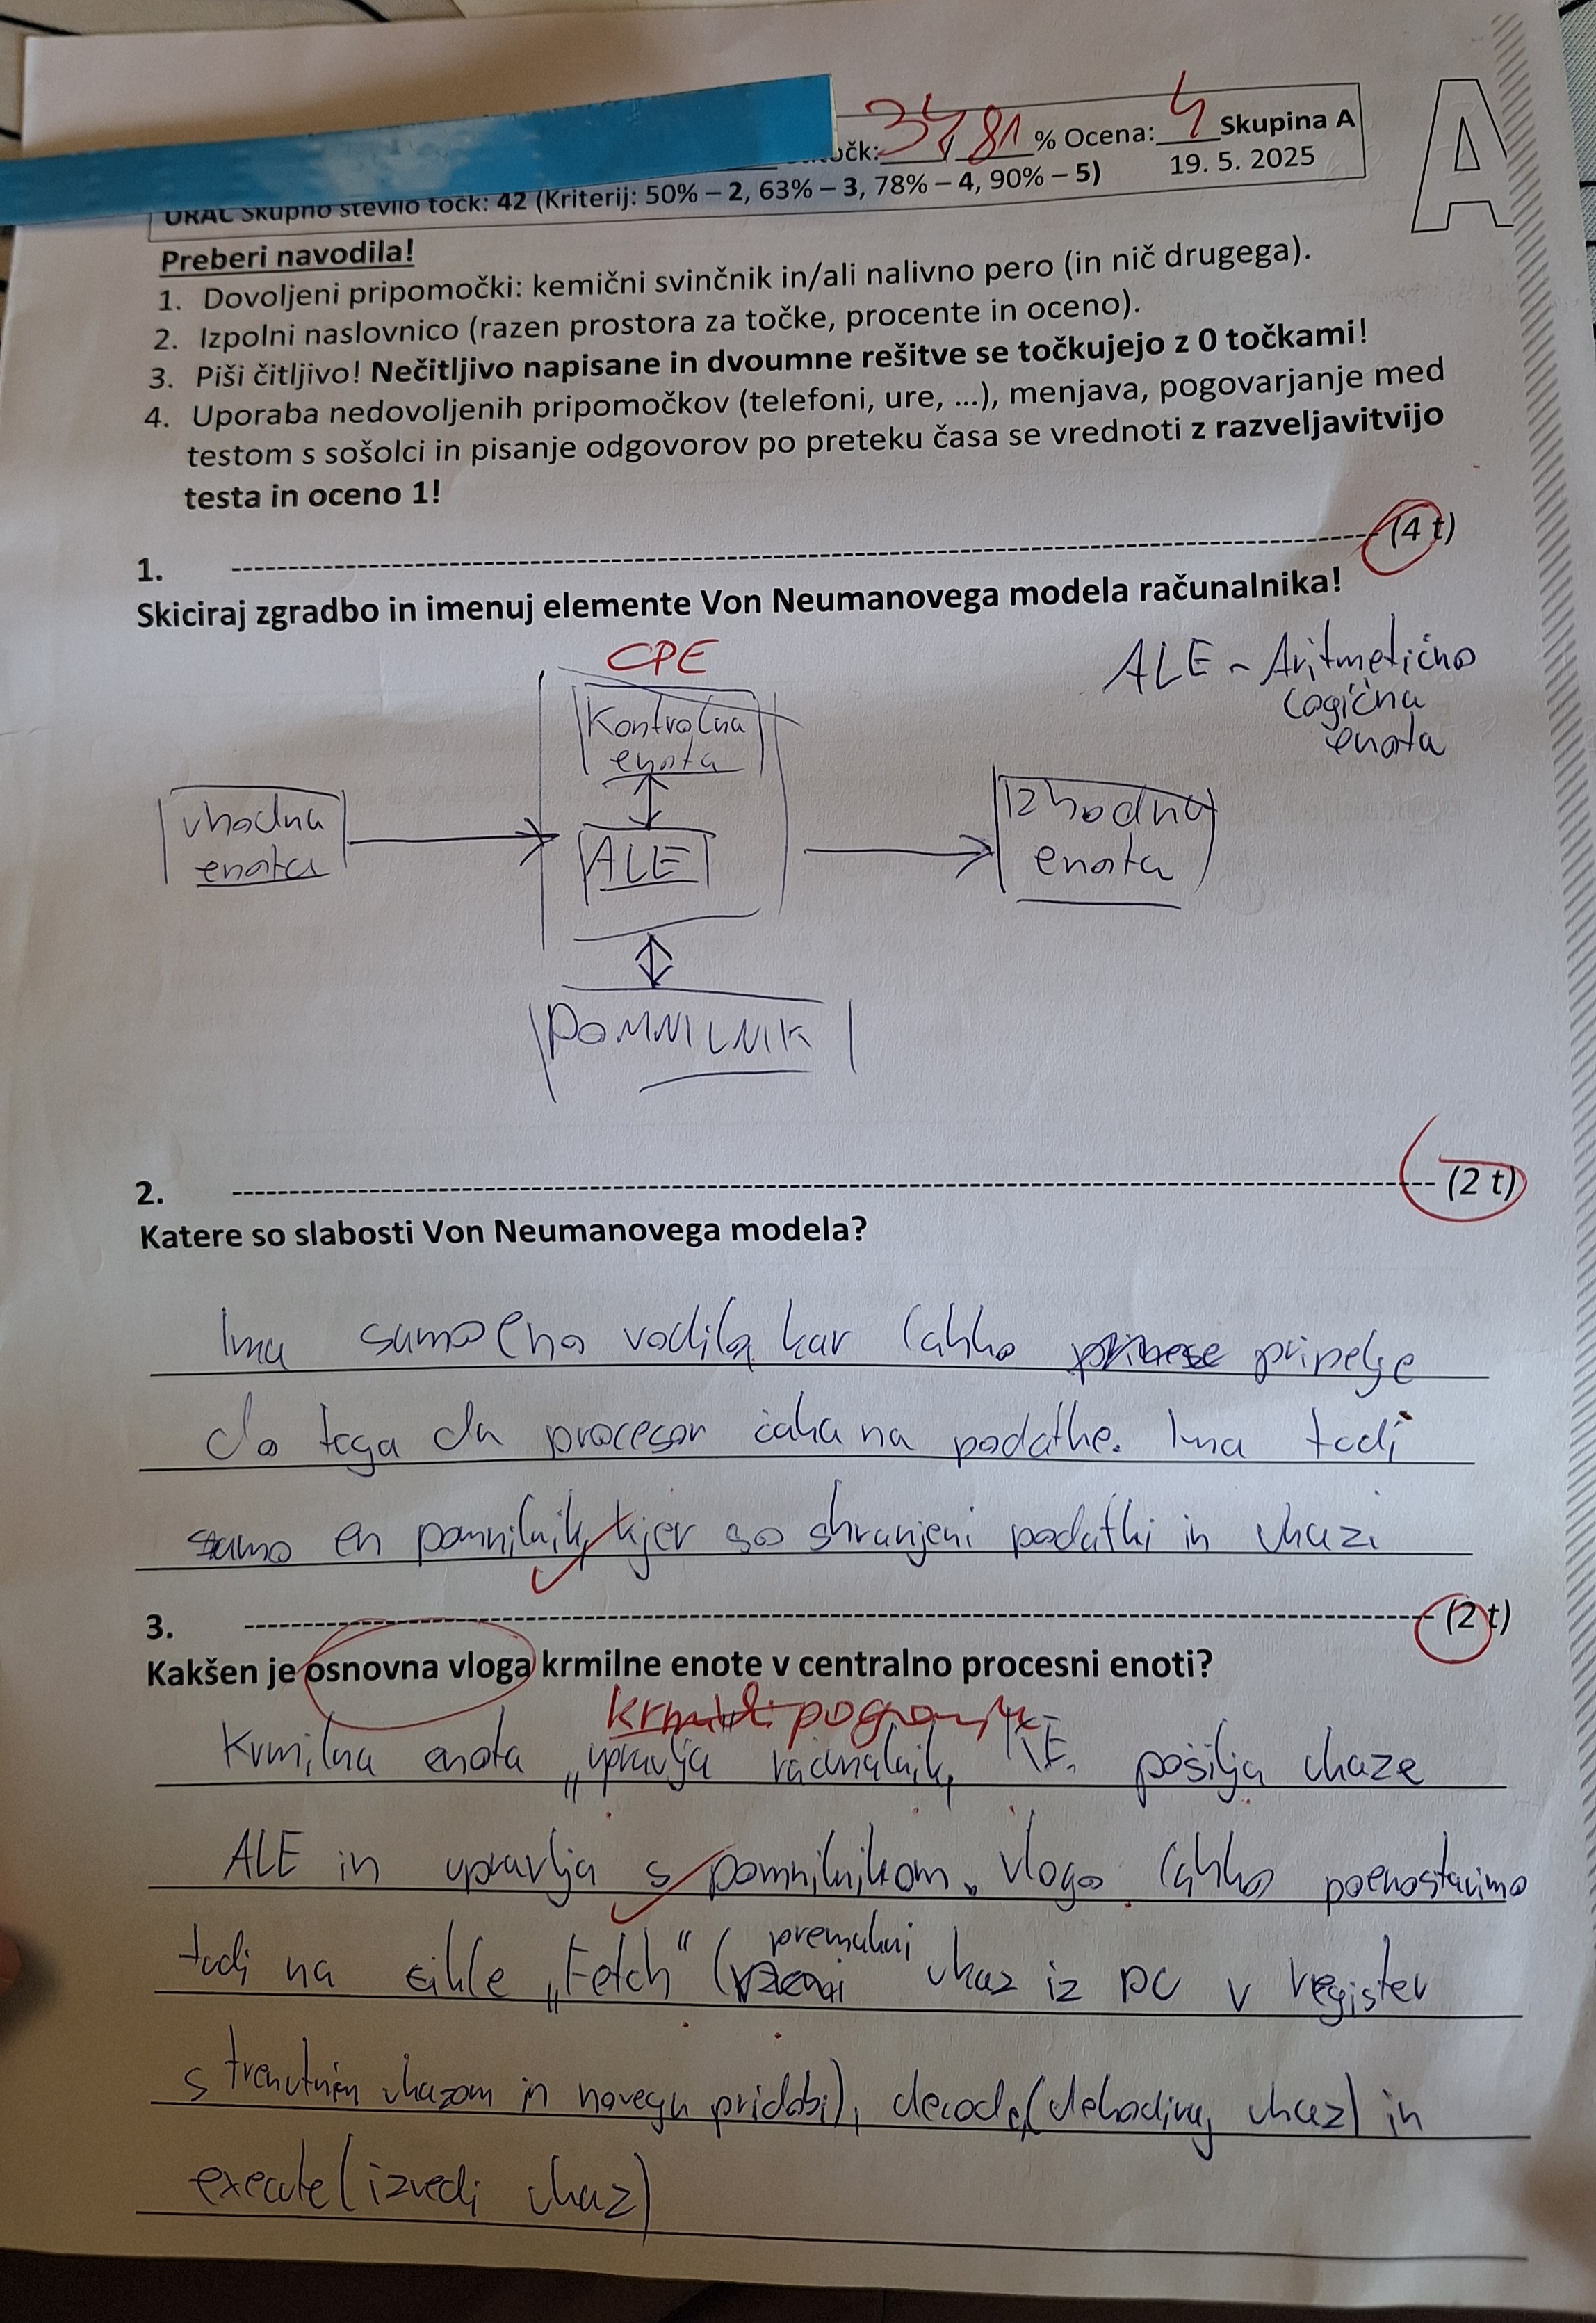 očk: 34 / 81 % Ocena: 4 Skupina A
19. 5. 2025
URAC Skupno število točk: 42 (Kriterij: 50% – 2, 63% – 3, 78% – 4, 90% – 5)
A
Preberi navodila!
1. Dovoljeni pripomočki: kemični svinčnik in/ali nalivno pero (in nič drugega).
2. Izpolni naslovnico (razen prostora za točke, procente in oceno).
3. Piši čitljivo! Nečitljivo napisane in dvoumne rešitve se točkujejo z 0 točkami!
4. Uporaba nedovoljenih pripomočkov (telefoni, ure, ...), menjava, pogovarjanje med
testom s sošolci in pisanje odgovorov po preteku časa se vrednoti z razveljavitvijo
testa in oceno 1!
1. (4 t)
Skiciraj zgradbo in imenuj elemente Von Neumanovega modela računalnika!
CPE
ALE - Aritmetično
logična
enota
Kontrolna
enota
vhodna
enota
ALE
Izhodna
enota
POMNILNIK
2. (2 t)
Katere so slabosti Von Neumanovega modela?
Ima samo eno vodilo, kar lahko pripelje
do tega da procesor čaka na podatke. Ima tudi
samo en pomnilnik, kjer so shranjeni podatki in ukazi
3. (2 t)
Kakšen je osnovna vloga krmilne enote v centralno procesni enoti?
Krmilna enota „upravlja računalnik, KE. pošilja ukaze
ALE in upravlja s pomnilnikom. vlogo lahko poenostavimo
tudi na cikle „Fetch" (premakni ukaz iz PC v register
s trenutnim ukazom in novega pridobi), decode (dekodiraj ukaz) in
execute (izvedi ukaz)